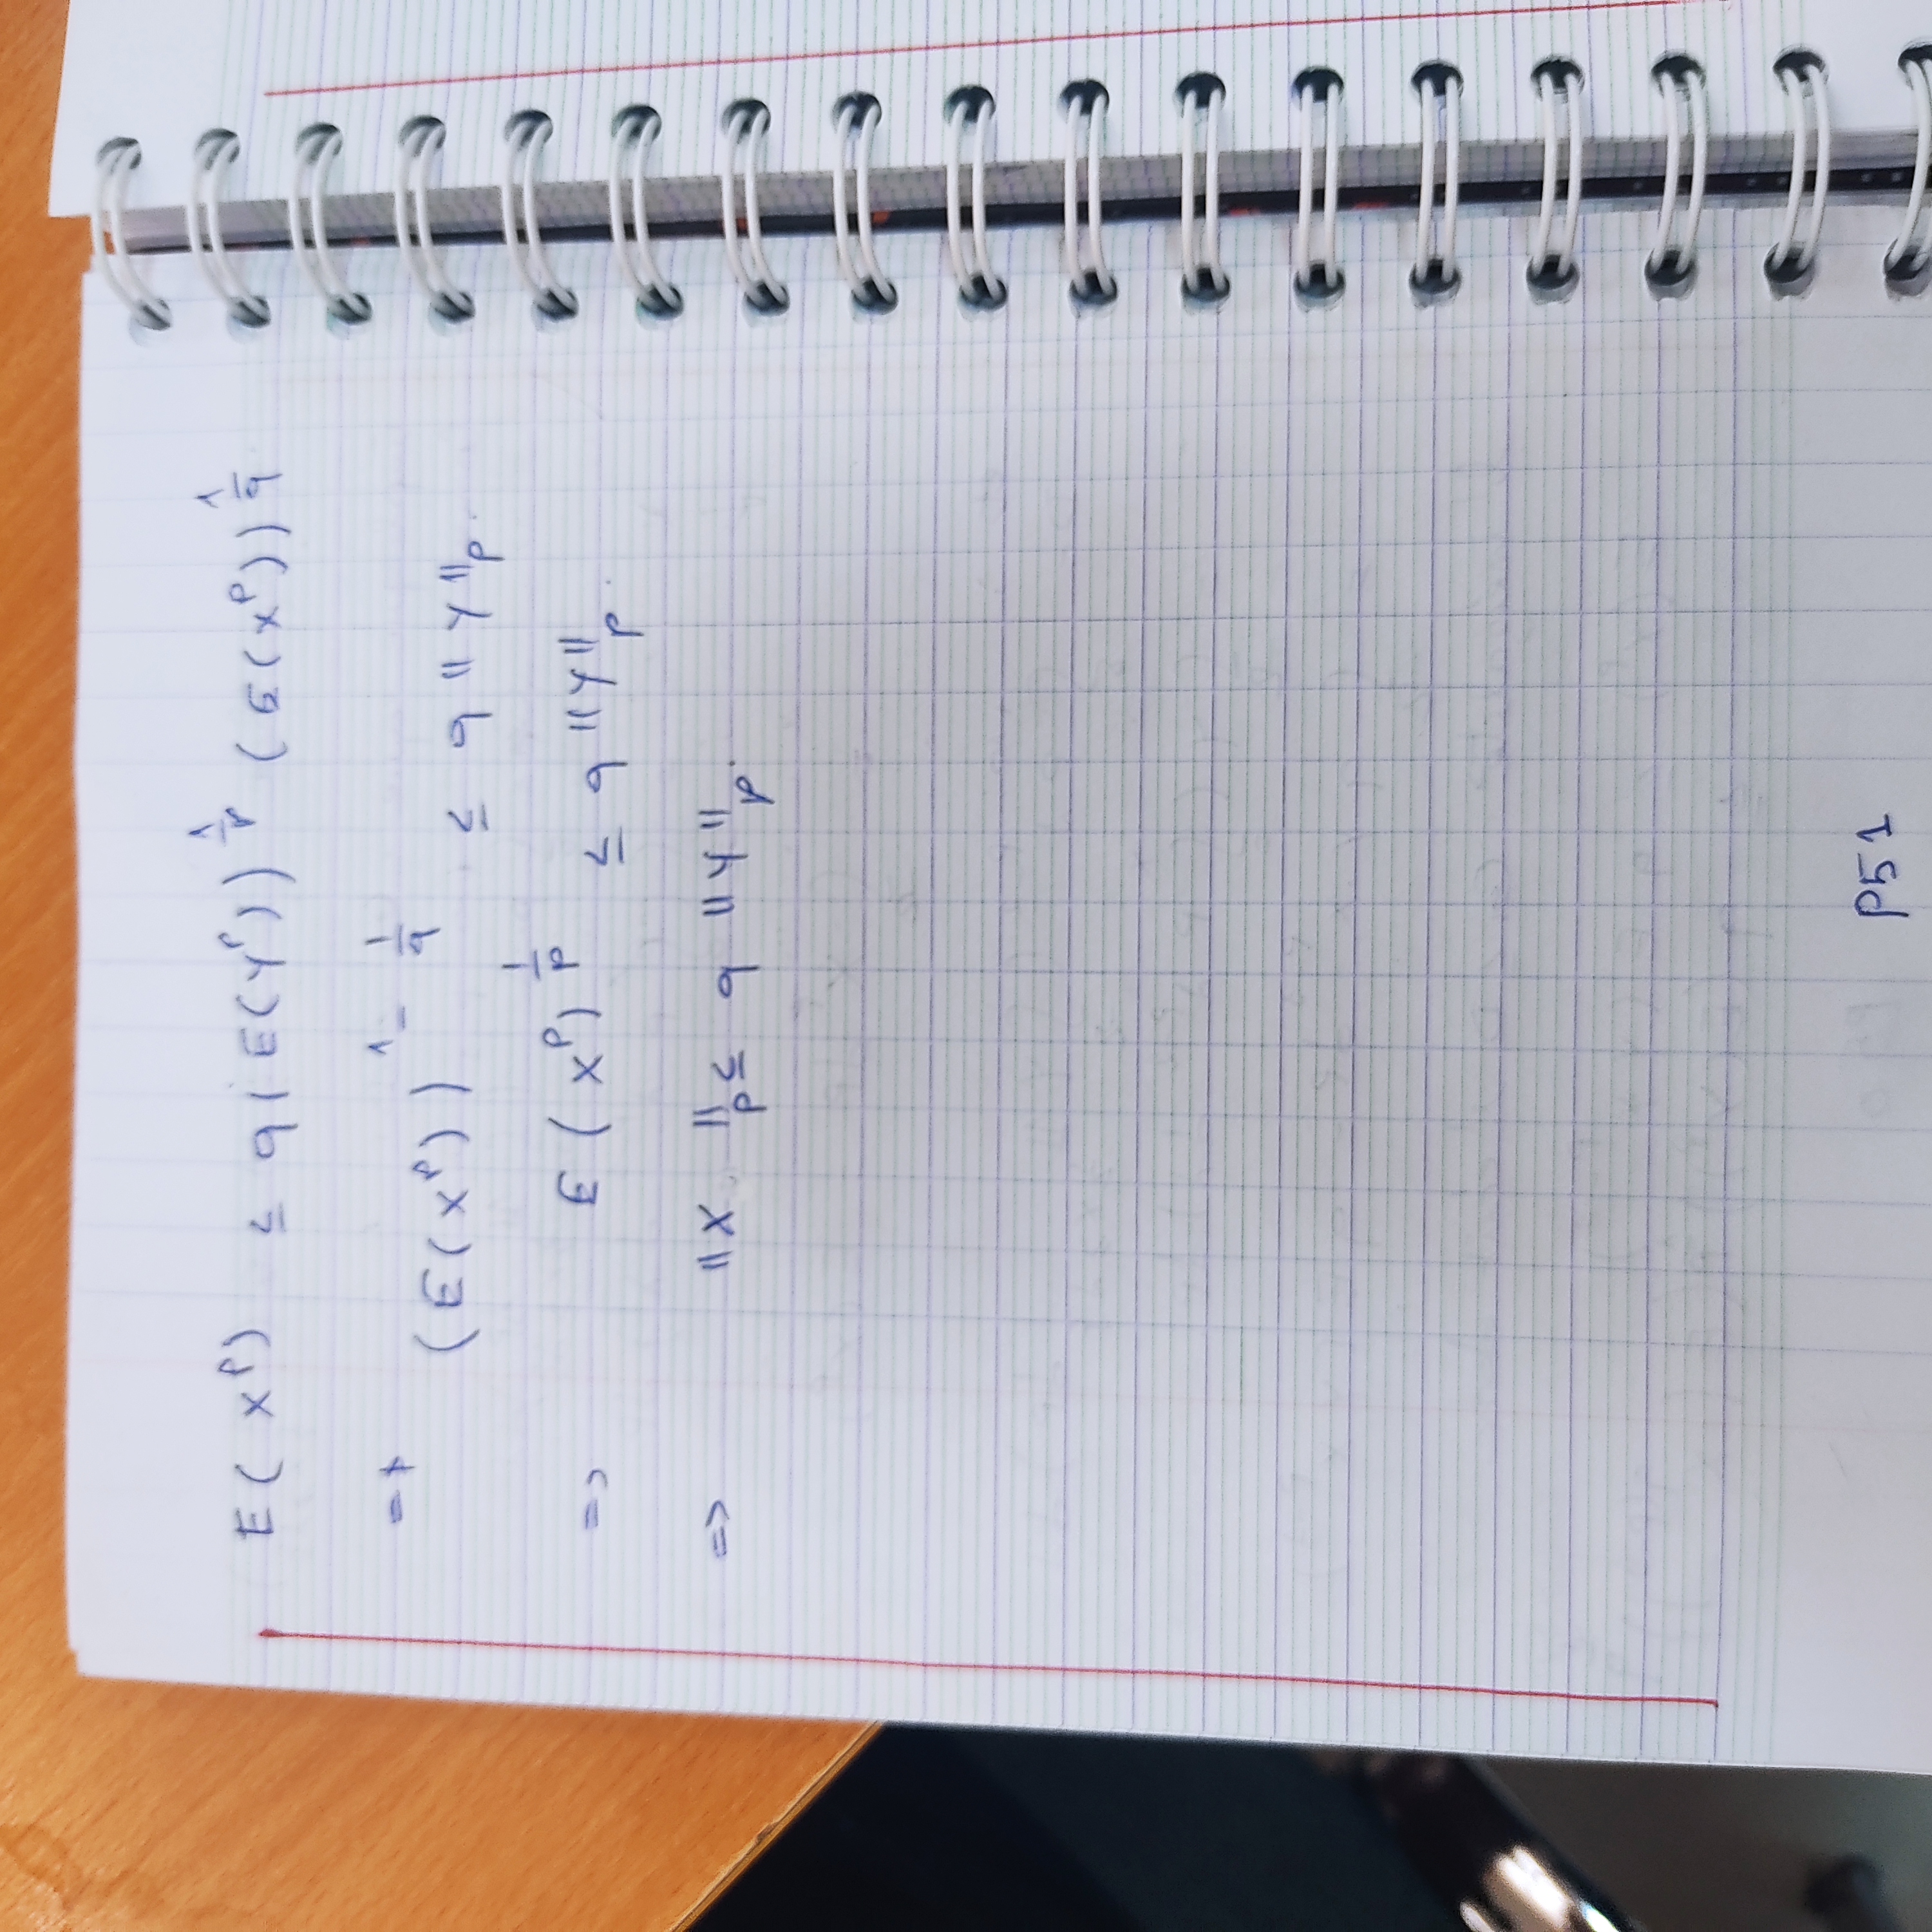 E(X^p) ≤ q(E(Y^p))^{1/p} (E(X^p))^{1/q}
=> (E(X^p))^{1 - 1/q} ≤ q ||Y||_p.
=> E(X^p)^{1/p} ≤ q ||Y||_p.
=> ||X||_p ≤ q ||Y||_p.
P51